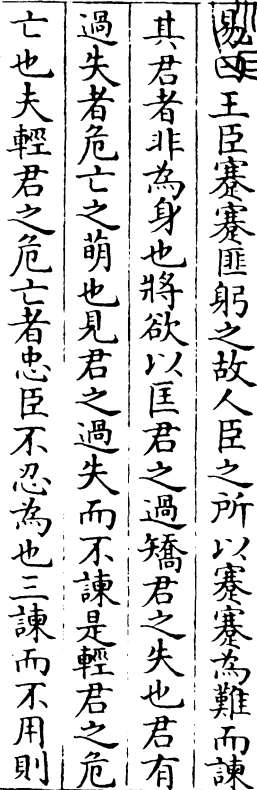 易曰王臣蹇蹇匪躬之故人臣之所以蹇蹇為難而諫
其君者非為身也將欲以匡君之過矯君之失也君有
過失者危亡之萌也見君之過失而不諫是輕君之危
亡也夫輕君之危亡者忠臣不忍為也三諫而不用則